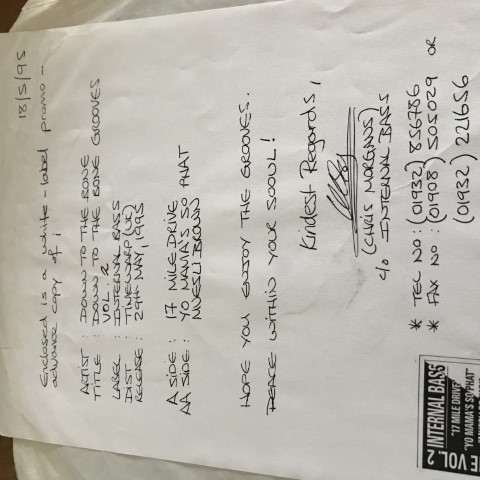 18/5/95
Enclosed is a white-label promo -
advance copy of:
ARTIST : DOWN TO THE BONE
TITLE : DOWN TO THE BONE GROOVES
VOL. 2
LABEL : INTERNAL BASS
DIST : TIMEWARP (UK)
RELEASE : 29TH MAY, 1995
A SIDE : 17 MILE DRIVE
AA SIDE : YO MAMA'S SO PHAT
MUESLI BROWN
HOPE YOU ENJOY THE GROOVES.
PEACE WITHIN YOUR SOUL!
Kindest Regards,
(CHRIS MORGANS)
c/o INTERNAL BASS
* TEL NO : (01932) 856786
* FAX NO : (01908) 505029 OR
(01932) 221656
E VOL.2
INTERNAL BASS
"17 MILE DRIVE"
"YO MAMA'S SO PHAT"